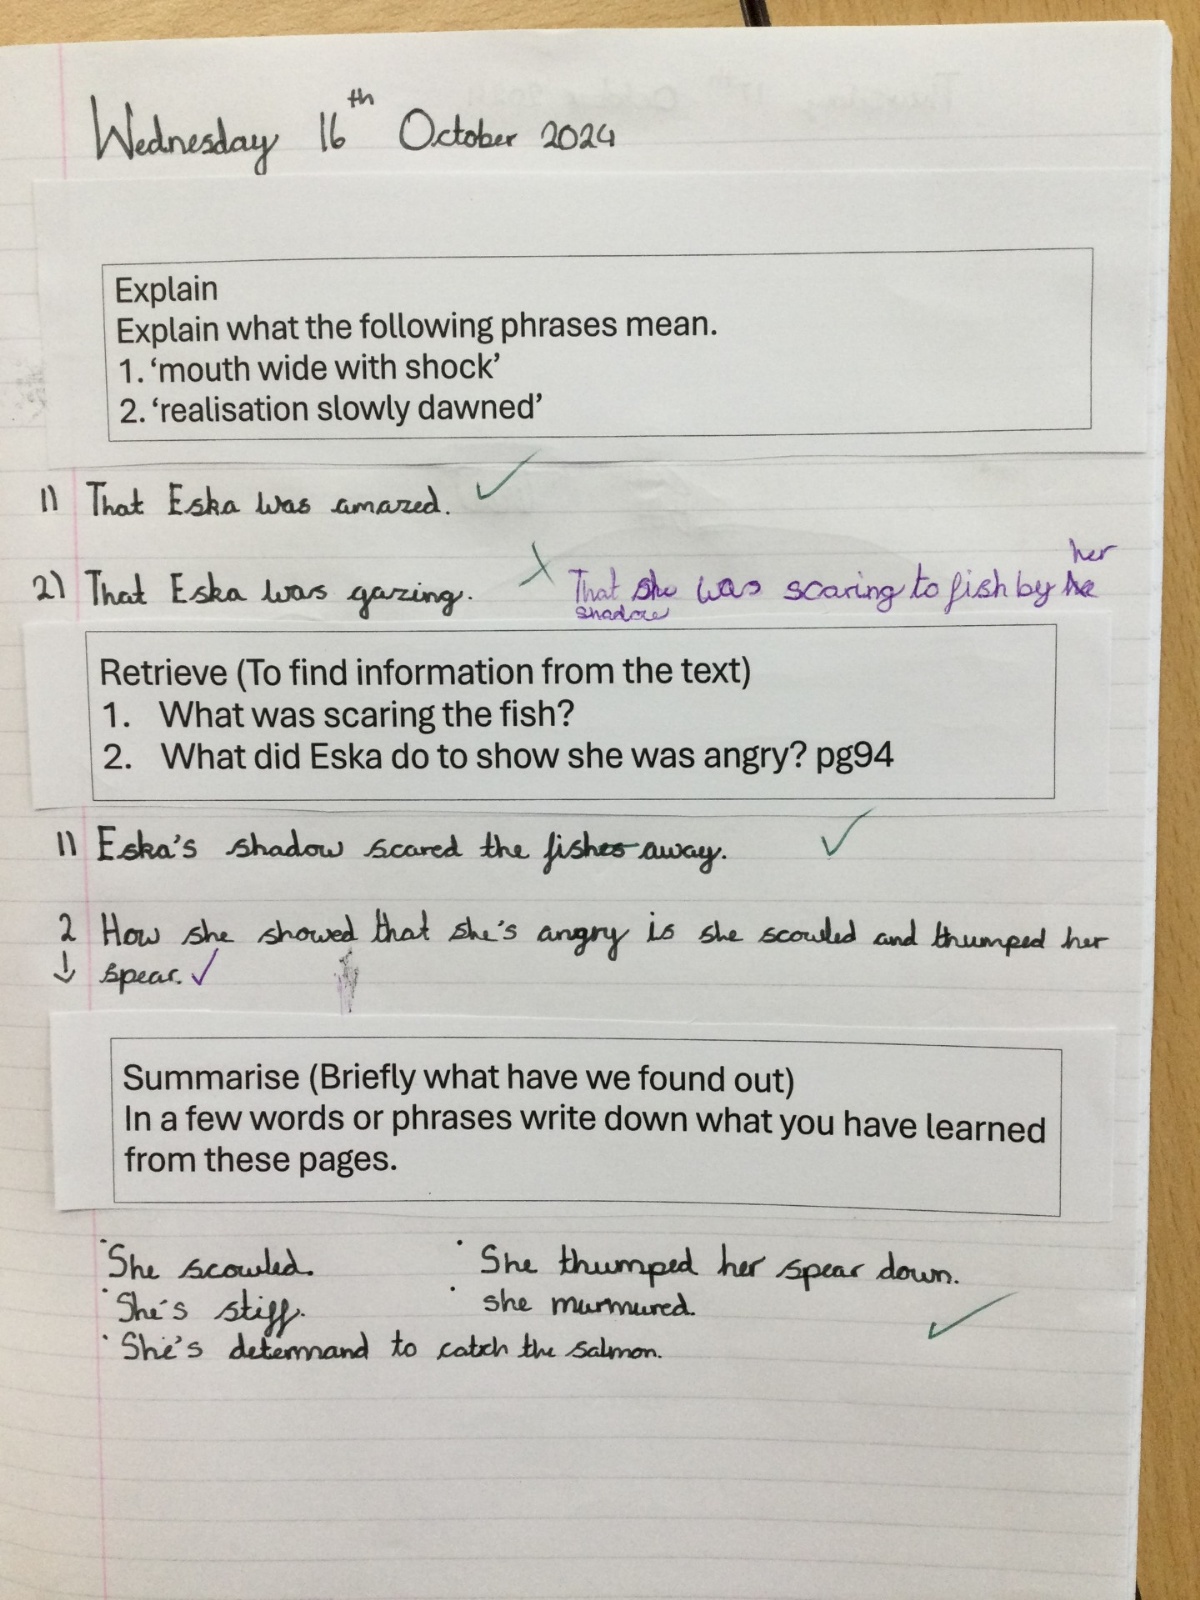 Wednesday 16th October 2024
Explain
Explain what the following phrases mean.
1. ‘mouth wide with shock’
2. ‘realisation slowly dawned’
1) That Eska was amazed.
2) That Eska was gazing. That she was scaring to fish by he her
shadow
Retrieve (To find information from the text)
1. What was scaring the fish?
2. What did Eska do to show she was angry? pg94
1) Eska's shadow scared the fishes away.
2 How she showed that she's angry is she scowled and thumped her
↓ spear.
Summarise (Briefly what have we found out)
In a few words or phrases write down what you have learned
from these pages.
• She scowled. • She thumped her spear down.
• She's stiff. • she murmured.
• She's determnand to catch the salmon.